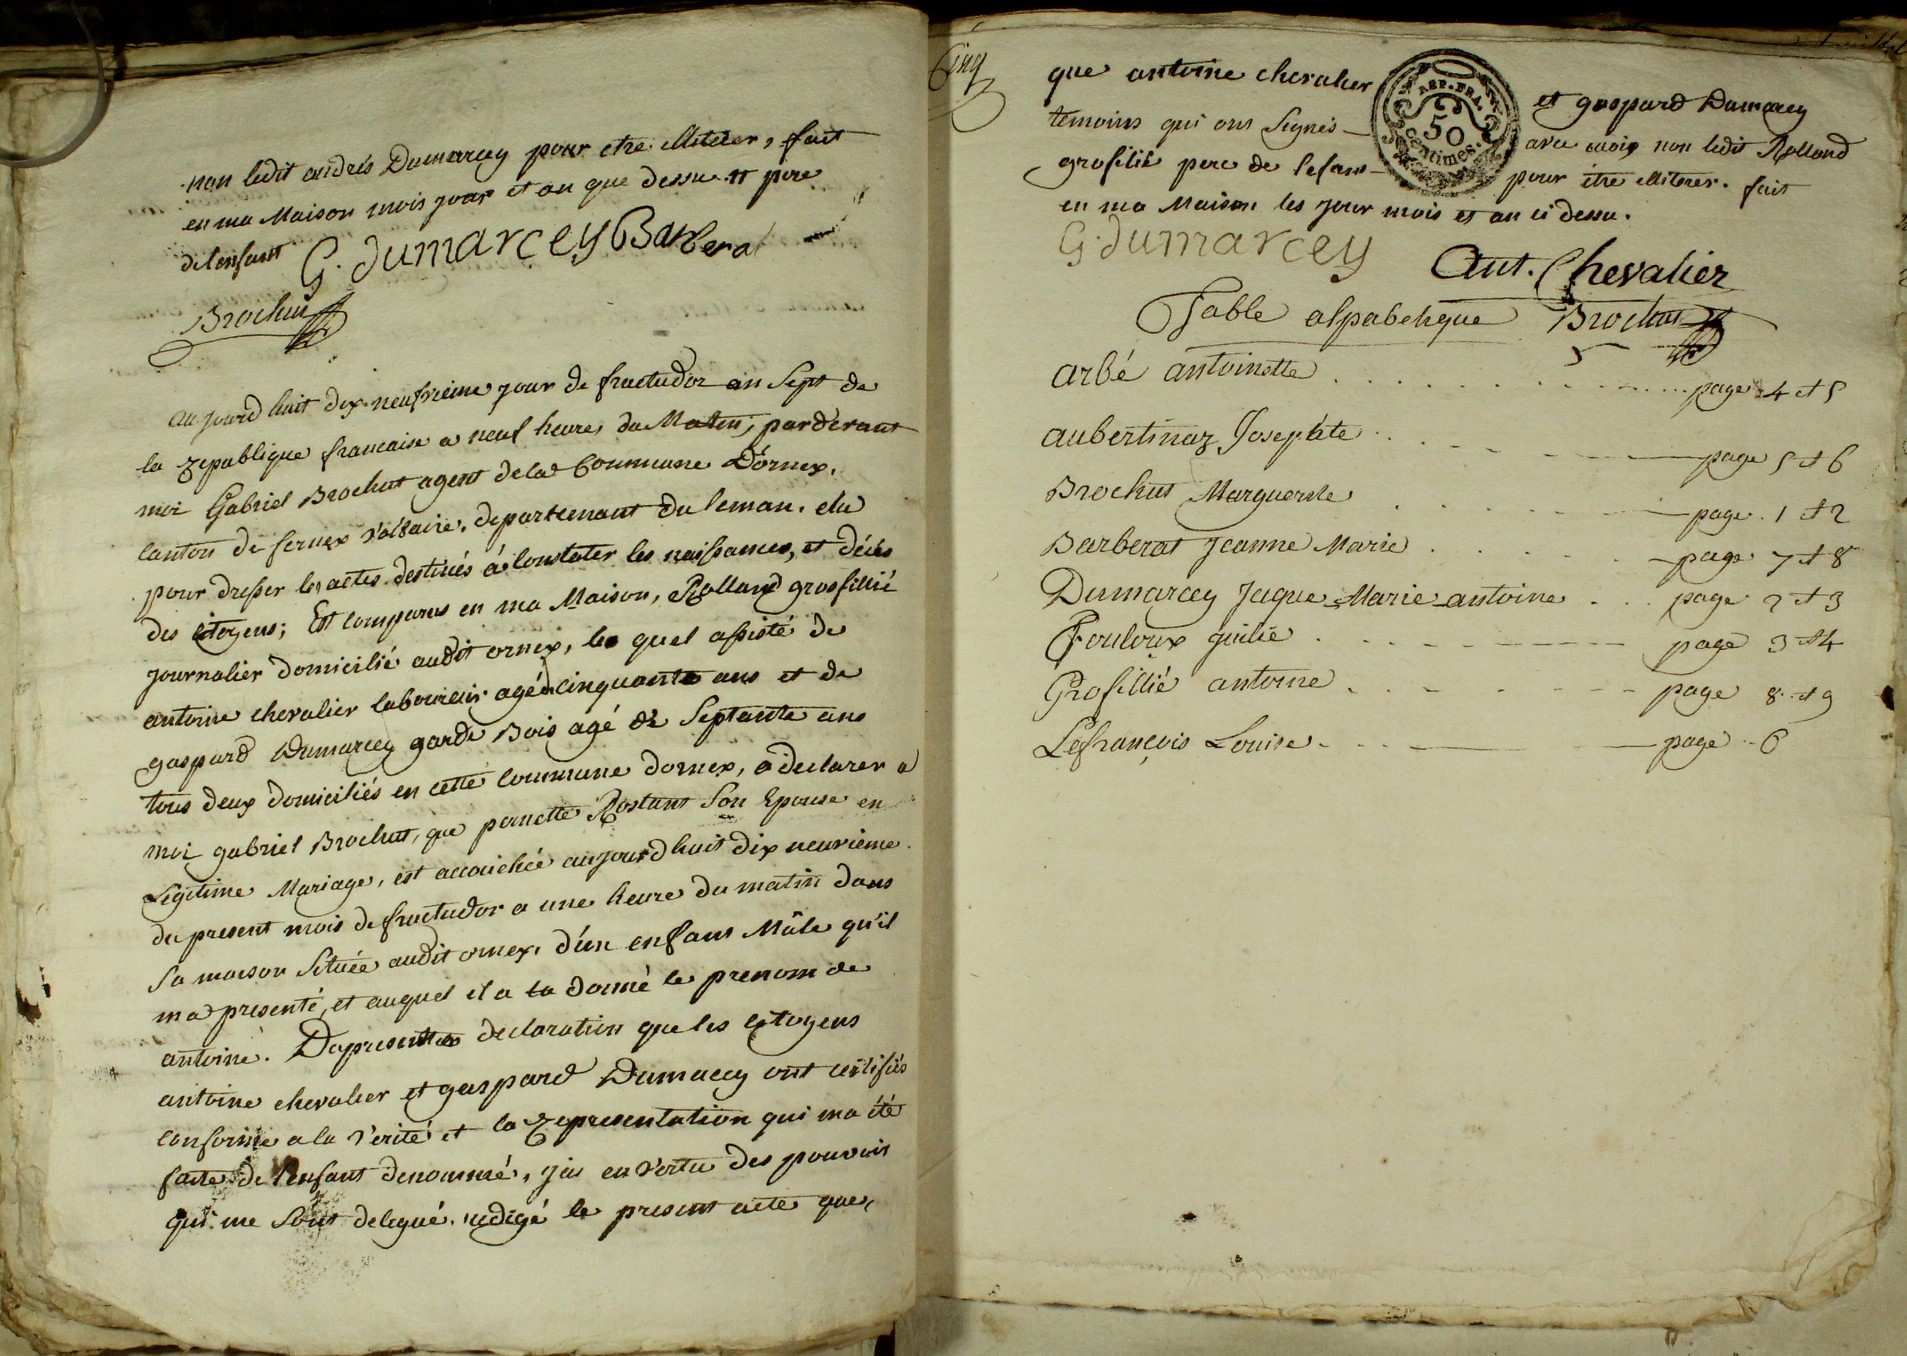 non ledit andrés Dumarcey pour etre illiterer, fait
en ma Maison mois jour et an que dessu et pere
de lenfant G. dumarcey Barberat
Brochut
aujourdhuit dix neufvieme jour de fructudor an Sept de
la republique francaise a neuf heures du Matin, pardevant
moi Gabriel Brochut agent de la Commune Dornex,
canton de fernex voltaire, departement du leman, elu
pour dresser les actes destinés à constater les naissances, et décès
des citoyens; Est comparus en ma Maison, Rolland grosfillié
journalier domicilié audit ornex, le quel assisté de
antoine chevalier laboureur agé cinquante ans et de
gaspard Dumarcey garde Bois agé de Septante ans
tous deux domiciliés en cette commune dornex, a declarer a
moi gabriel Brochut, que pernette Rostant Son Epouse en
Légitime Mariage, est accouchée aujourdhuit dix neuvieme
du present mois de fructudor a une heure du matin dans
sa maison Située audit ornex, d'un enfans Mâle qu'il
ma presenté, et auquel il a ta donné le prenom de
antoine. Dapres cette declaration que les citoyens
antoine chevalier et gaspard Dumacey ont certifiés
conforme a la verité et la representation qui ma été
faite de l'enfant denommé, jai en vertu des pouvoir
qui me Sont delegué, redigé le present acte que,
Cinq
que antoine chevalier et gaspard Dumarcey
temoins qui ons Signés avec moi, non ledit Rolland
grosfilié pere de lefans pour être illiterer. fait
en ma Maison les jour mois et an ci dessu.
REP. FRA.
50
centimes.
G. dumarcey
Ant. Chevalier
Table alpabetique Brochut
arbé antoinette page 4 et 5
aubertinaz Josephte page 5 et 6
Brochut Marguerite page 1 et 2
Barberat Jeanne Marie page 7 et 8
Dumarcey Jaque Marie antoine page 2 et 3
Fouloux julie page 3 et 4
Grosfillié antoine page 8 et 9
Lefrançois Louise page 6